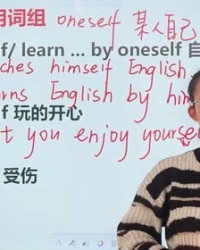 用词组 oneself 某人自己
f/ learn ... by oneself 自
ches himself English
rns English by him
f 玩的开心
t you enjoy yourse
受伤